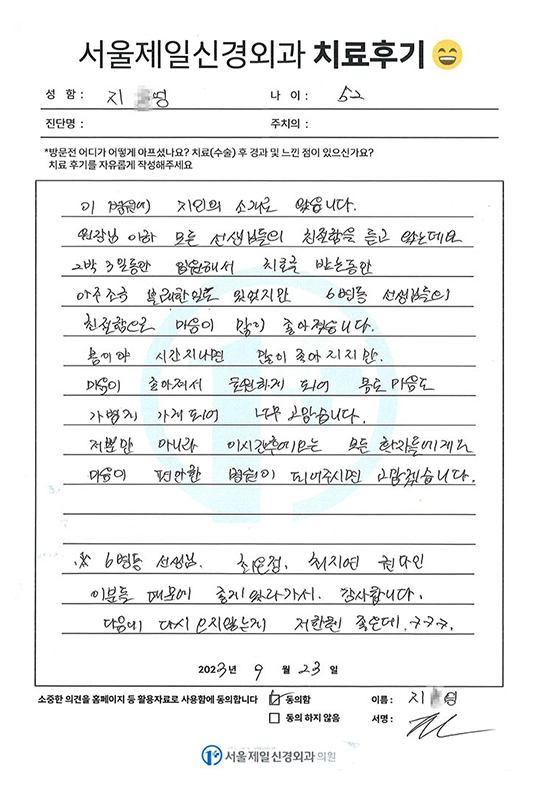 서울제일신경외과 치료후기
성 함 : 지 영 나 이 : 52
진단명 : 주치의 :
*방문전 어디가 어떻게 아프셨나요? 치료(수술) 후 경과 및 느낀 점이 있으신가요?
치료 후기를 자유롭게 작성해주세요
이 병원에 지인의 소개로 왔습니다.
원장님 이하 모든 선생님들의 친절함을 듣고 왔는데요
2박 3일동안 입원해서 치료를 받는동안
아주조금 불쾌한일도 있었지만 6병동 선생님들의
친절함으로 마음이 많이 좋아졌습니다.
몸이야 시간지나면 많이 좋아 지지만.
마음이 좋아져서 퇴원하게 되어 몸도 마음도
가볍게 가게되어 너무 고맙습니다.
저뿐만 아니라 이시간후에오는 모든 환자들에게도
마음이 편안한 병원이 되어주시면 고맙겠습니다.
※ 6병동 선생님. 최은정, 최지연 권다인
이분들 때문에 좋게 있다가가서. 감사합니다.
다음에 다시 오지않는게 저한텐 좋은데.ㅋㅋㅋ.
2023년 9 월 23 일
소중한 의견을 홈페이지 등 활용자료로 사용함에 동의합니다 동의함 이름 : 지 영
동의 하지 않음 서명 :
서울제일신경외과 의원